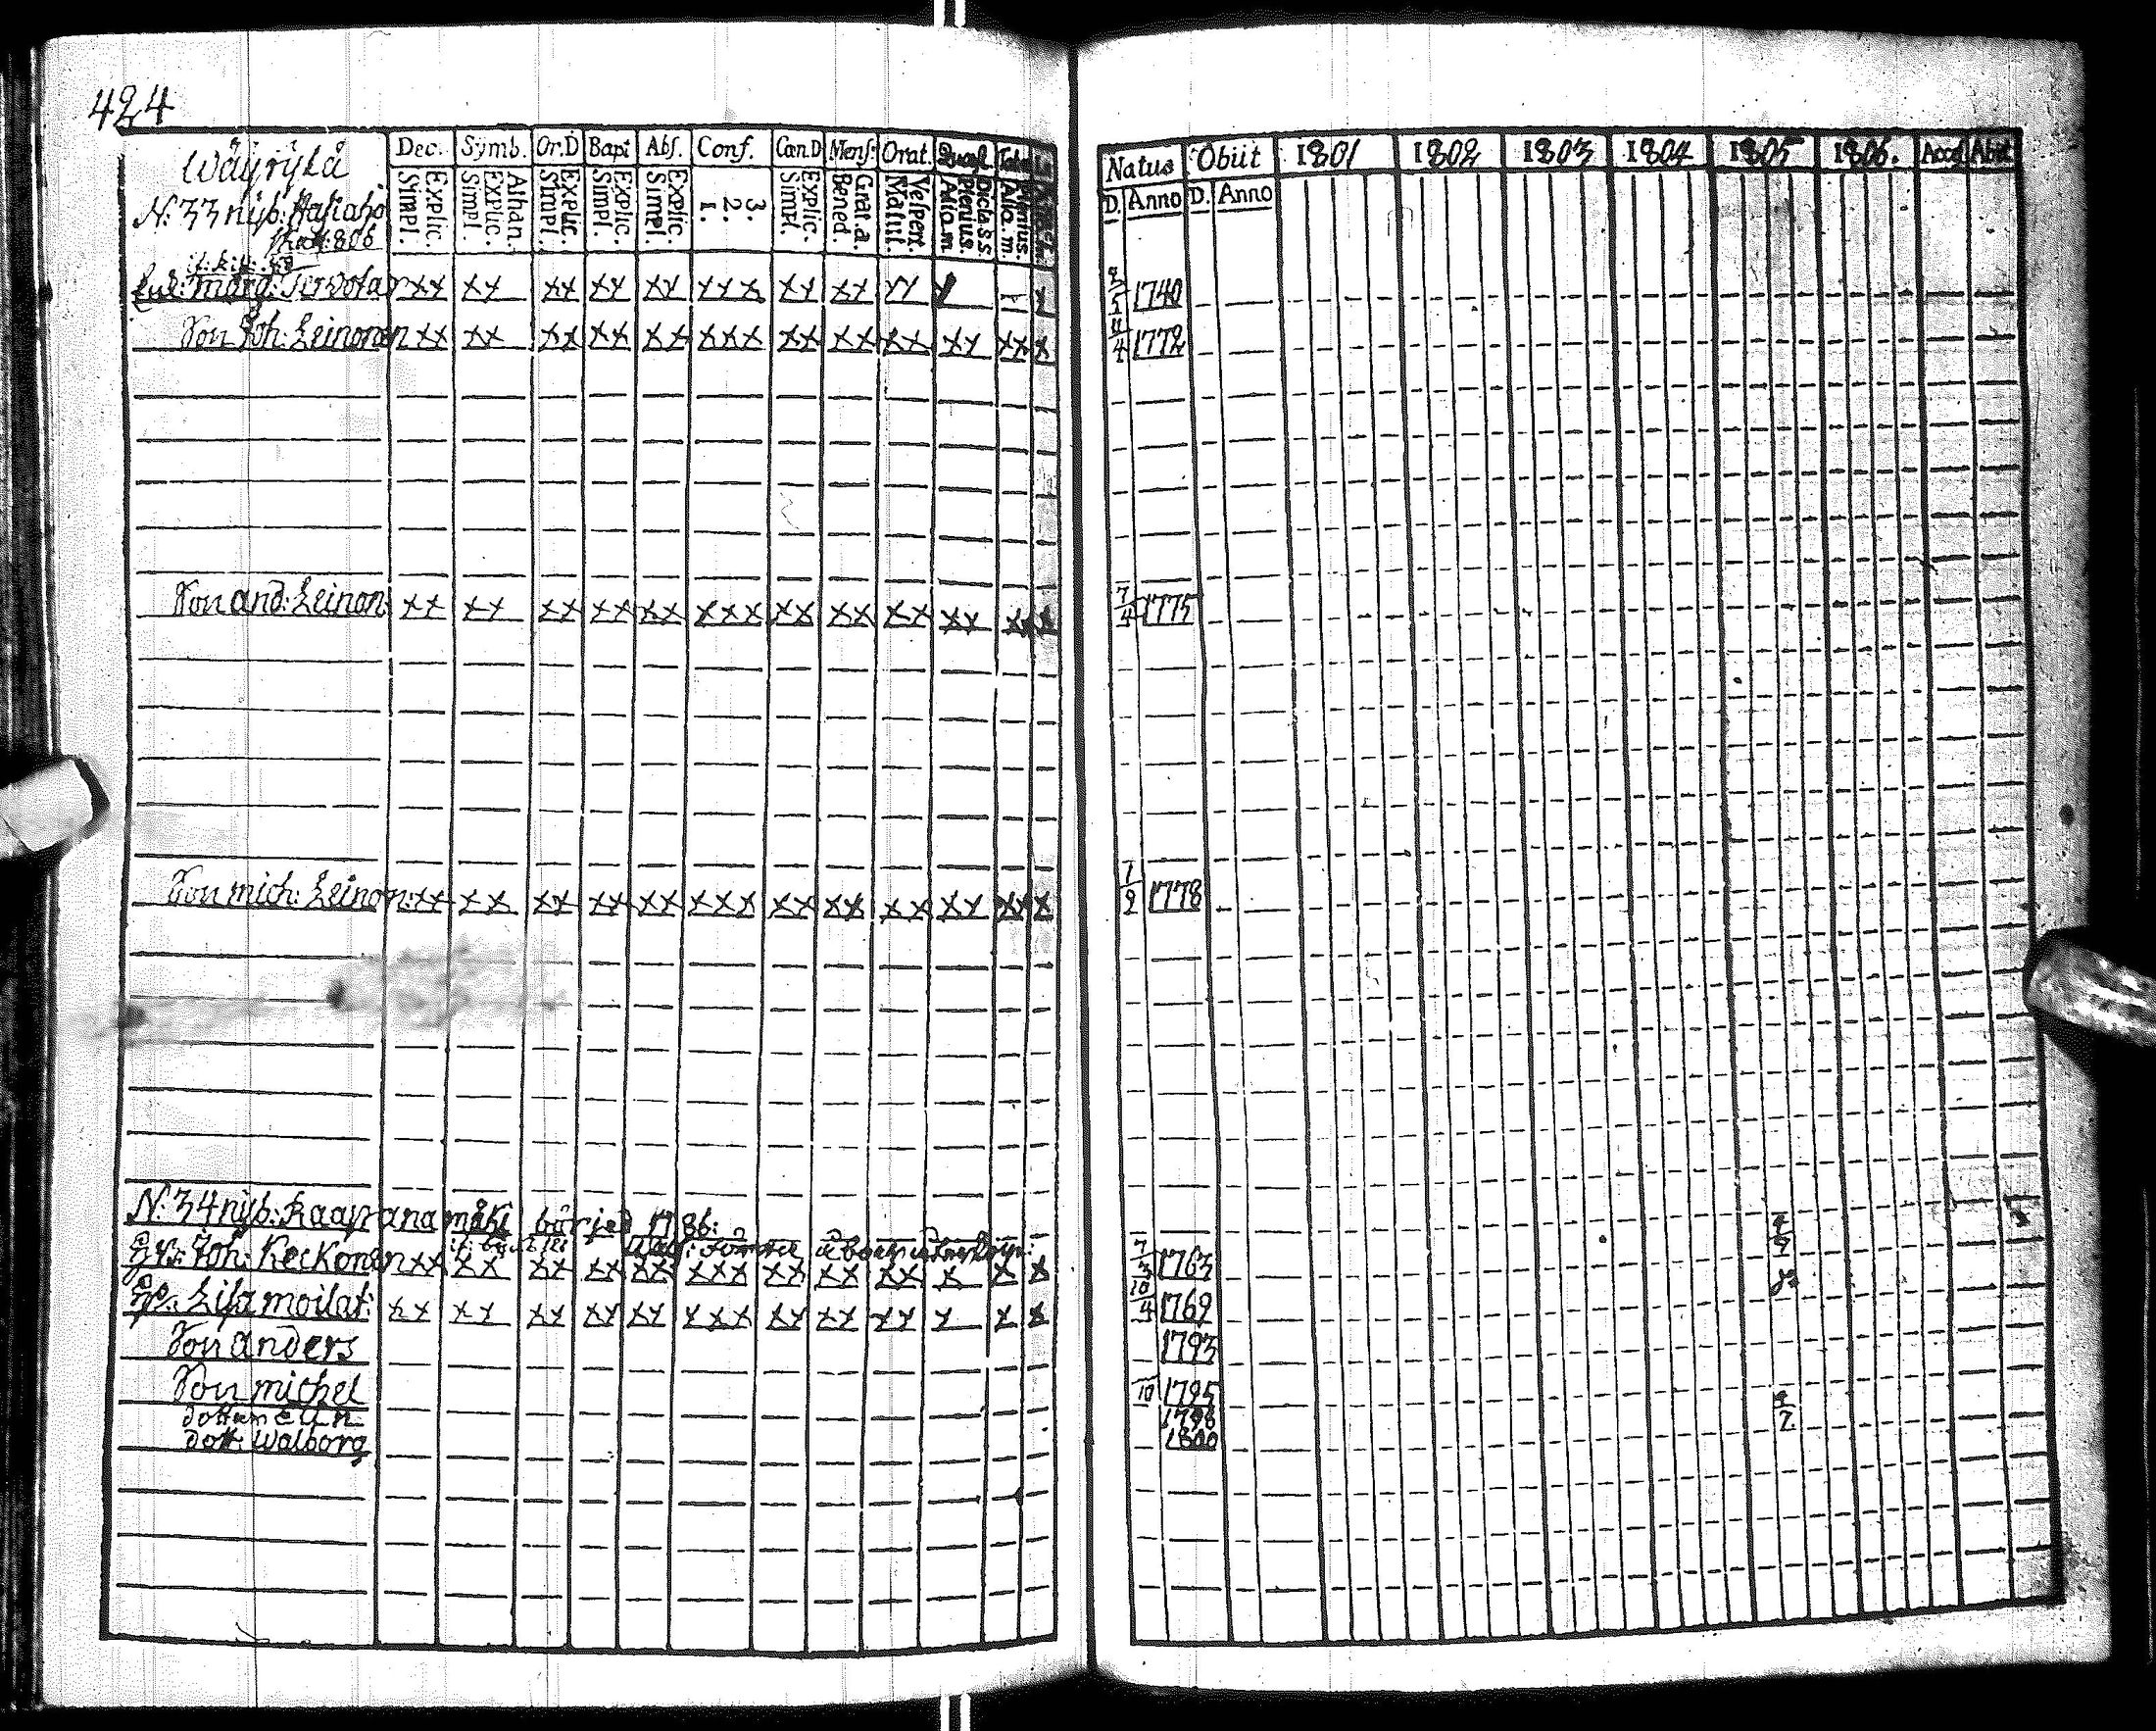 424
Wäyrylä
N: 33 nyb: Hasiaho
Dec. Symb. Or.D Bapt Abs. Conf. Cœn.D Mens: Orat. Quæst. Tab.
Explic. Simpl. Athan. Explic. Simpl. Explic. Simpl. Explic. Simpl. Explic. Simpl. 3. 2. 1. Explic. Simpl. Grat.a. Bened. Vespert. Matut. D.cla.ss. Plenius. Aɫta.m. Plenius. Aɫta.m.
Natus Obiit 1801 1802 1803 1804 1805 1806. Acces Abiit
D. Anno D. Anno
Enk: Marg: xx xx xx xx xx xxx xx xx xx x 1740
Son Joh: Leinonen xx xx xx xx xx xxx xx xx xx xx xx x 4 1772
Son And: Leinon: xx xx xx xx xx xxx xx xx xx xx xx x 7/4 1775
Son Mich: Leinon: xx xx xx xx xx xxx xx xx xx xx xx x 1/9 1778
N: 34 nyb: Kaapranamäki börjed 1786:
Joh: Keckonen xx xx xx xx xx xxx xx xx xx x x x 7/3 1763
Lisa Moilat: xx xx xx xx xx xxx xx xx xx x x x 10/4 1769
Son Anders 1793
Son Michel 10 1795
1798
Dott: Walborg 1800